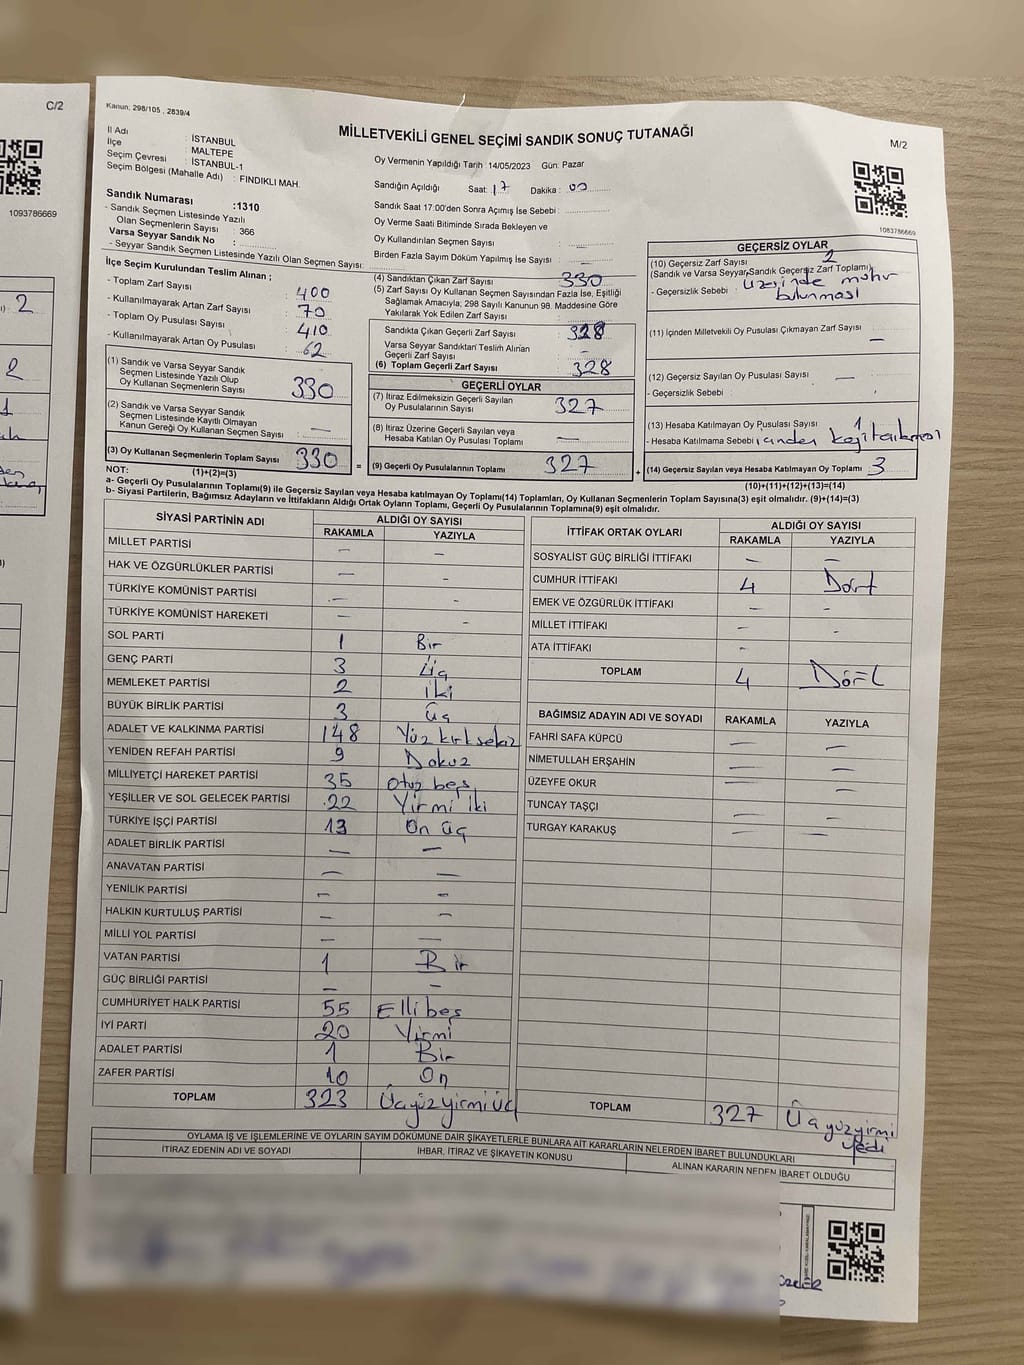 C/2
1093786669
Kanun: 298/105 , 2839/4
MİLLETVEKİLİ GENEL SEÇİMİ SANDIK SONUÇ TUTANAĞI
M/2
1083786669
İl Adı : İSTANBUL
İlçe : MALTEPE
Seçim Çevresi : İSTANBUL-1
Seçim Bölgesi (Mahalle Adı) : FINDIKLI MAH.
Sandık Numarası :1310
- Sandık Seçmen Listesinde Yazılı
Olan Seçmenlerin Sayısı : 366
Varsa Seyyar Sandık No :
- Seyyar Sandık Seçmen Listesinde Yazılı Olan Seçmen Sayısı:
Oy Vermenin Yapıldığı Tarih :14/05/2023 Gün: Pazar
Sandığın Açıldığı Saat: 17 Dakika : 00
Sandık Saat 17:00'den Sonra Açımış İse Sebebi :
Oy Verme Saati Bitiminde Sırada Bekleyen ve
Oy Kullandırılan Seçmen Sayısı :
Birden Fazla Sayım Döküm Yapılmış İse Sayısı :
İlçe Seçim Kurulundan Teslim Alınan ;
- Toplam Zarf Sayısı : 400
- Kullanılmayarak Artan Zarf Sayısı : 70
- Toplam Oy Pusulası Sayısı : 410
- Kullanılmayarak Artan Oy Pusulası : 62
(1) Sandık ve Varsa Seyyar Sandık
Seçmen Listesinde Yazılı Olup
Oy Kullanan Seçmenlerin Sayısı : 330
(2) Sandık ve Varsa Seyyar Sandık
Seçmen Listesinde Kayıtlı Olmayan
Kanun Gereği Oy Kullanan Seçmen Sayısı : —
(3) Oy Kullanan Seçmenlerin Toplam Sayısı : 330 =
(4) Sandıktan Çıkan Zarf Sayısı : 330
(5) Zarf Sayısı Oy Kullanan Seçmen Sayısından Fazla İse, Eşitliği
Sağlamak Amacıyla; 298 Sayılı Kanunun 98. Maddesine Göre
Yakılarak Yok Edilen Zarf Sayısı :
Sandıkta Çıkan Geçerli Zarf Sayısı : 328
Varsa Seyyar Sandıktan Teslim Alınan
Geçerli Zarf Sayısı : -
(6) Toplam Geçerli Zarf Sayısı : 328
GEÇERLİ OYLAR
(7) İtiraz Edilmeksizin Geçerli Sayılan
Oy Pusulalarının Sayısı : 327
(8) İtiraz Üzerine Geçerli Sayılan veya
Hesaba Katılan Oy Pusulası Toplamı : —
(9) Geçerli Oy Pusulalarının Toplamı : 327 +
GEÇERSİZ OYLAR
(10) Geçersiz Zarf Sayısı : 2
(Sandık ve Varsa Seyyar Sandık Geçersiz Zarf Toplamı)
- Geçersizlik Sebebi : üzerinde mühür
bulunması
(11) İçinden Milletvekili Oy Pusulası Çıkmayan Zarf Sayısı : —
(12) Geçersiz Sayılan Oy Pusulası Sayısı : —
- Geçersizlik Sebebi :
(13) Hesaba Katılmayan Oy Pusulası Sayısı : 1
- Hesaba Katılmama Sebebi :
(14) Geçersiz Sayılan veya Hesaba Katılmayan Oy Toplamı : 3
NOT: (1)+(2)=(3) (10)+(11)+(12)+(13)=(14)
a- Geçerli Oy Pusulalarının Toplamı(9) ile Geçersiz Sayılan veya Hesaba katılmayan Oy Toplamı(14) Toplamları, Oy Kullanan Seçmenlerin Toplam Sayısına(3) eşit olmalıdır. (9)+(14)=(3)
b- Siyasi Partilerin, Bağımsız Adayların ve İttifakların Aldığı Ortak Oyların Toplamı, Geçerli Oy Pusulalarının Toplamına(9) eşit olmalıdır.
SİYASİ PARTİNİN ADI ALDIĞI OY SAYISI
RAKAMLA YAZIYLA
MİLLET PARTİSİ — —
HAK VE ÖZGÜRLÜKLER PARTİSİ — -
TÜRKİYE KOMÜNİST PARTİSİ — -
TÜRKİYE KOMÜNİST HAREKETİ — -
SOL PARTİ 1 Bir
GENÇ PARTİ 3 Üç
MEMLEKET PARTİSİ 2 iki
BÜYÜK BİRLİK PARTİSİ 3 Üç
ADALET VE KALKINMA PARTİSİ 148 Yüz kırk sekiz
YENİDEN REFAH PARTİSİ 9 Dokuz
MİLLİYETÇİ HAREKET PARTİSİ 35 Otuz beş
YEŞİLLER VE SOL GELECEK PARTİSİ 22 Yirmi iki
TÜRKİYE İŞÇİ PARTİSİ 13 On üç
ADALET BİRLİK PARTİSİ — —
ANAVATAN PARTİSİ — —
YENİLİK PARTİSİ — —
HALKIN KURTULUŞ PARTİSİ — —
MİLLİ YOL PARTİSİ — —
VATAN PARTİSİ 1 Bir
GÜÇ BİRLİĞİ PARTİSİ — —
CUMHURİYET HALK PARTİSİ 55 Elli beş
İYİ PARTİ 20 Yirmi
ADALET PARTİSİ 1 Bir
ZAFER PARTİSİ 10 On
TOPLAM 323 Üçyüz yirmi üç
İTTİFAK ORTAK OYLARI ALDIĞI OY SAYISI
RAKAMLA YAZIYLA
SOSYALİST GÜÇ BİRLİĞİ İTTİFAKI — —
CUMHUR İTTİFAKI 4 Dört
EMEK VE ÖZGÜRLÜK İTTİFAKI — -
MİLLET İTTİFAKI - -
ATA İTTİFAKI -
TOPLAM 4 Dört
BAĞIMSIZ ADAYIN ADI VE SOYADI RAKAMLA YAZIYLA
FAHRİ SAFA KÜPCÜ — —
NİMETULLAH ERŞAHİN — —
ÜZEYFE OKUR — —
TUNCAY TAŞÇI — —
TURGAY KARAKUŞ — —
TOPLAM 327 Üçyüz yirmi
yedi
OYLAMA İŞ VE İŞLEMLERİNE VE OYLARIN SAYIM DÖKÜMÜNE DAİR ŞİKAYETLERLE BUNLARA AİT KARARLARIN NELERDEN İBARET BULUNDUKLARI
İTİRAZ EDENİN ADI VE SOYADI İHBAR, İTİRAZ VE ŞİKAYETİN KONUSU ALINAN KARARIN NEDEN İBARET OLDUĞU